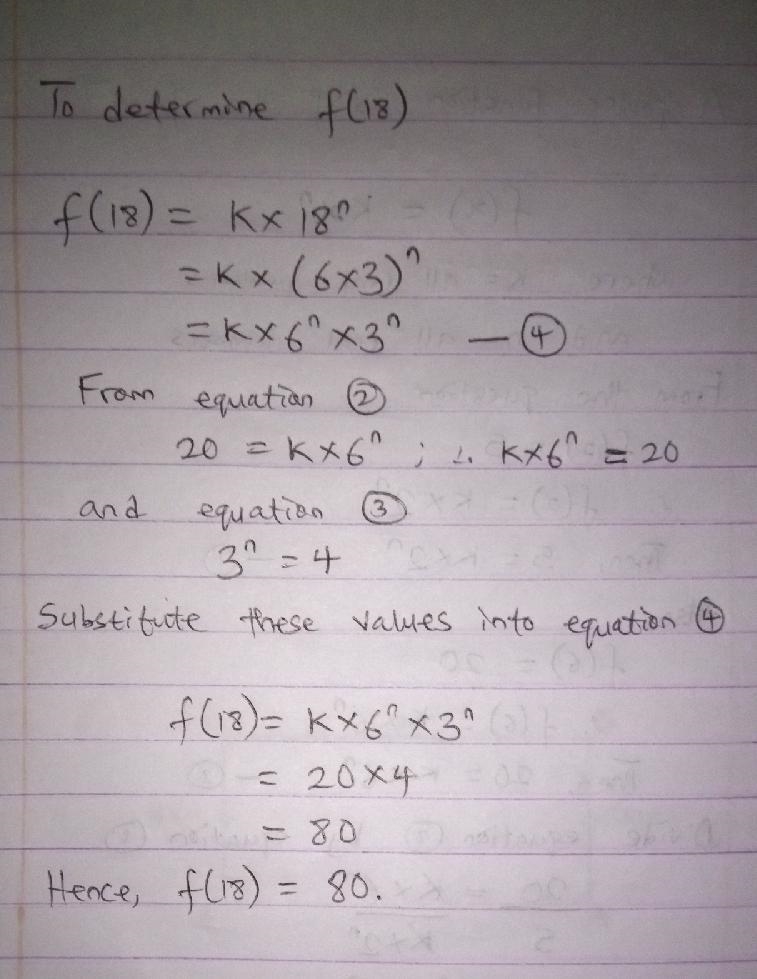 To determine f(18)
f(18) = K × 18ⁿ
= K × (6×3)ⁿ
= K × 6ⁿ × 3ⁿ — ④
From equation ②
20 = K × 6ⁿ ; ∴ K × 6ⁿ = 20
and equation ③
3ⁿ = 4
Substitute these values into equation ④
f(18) = K × 6ⁿ × 3ⁿ
= 20 × 4
= 80
Hence, f(18) = 80.